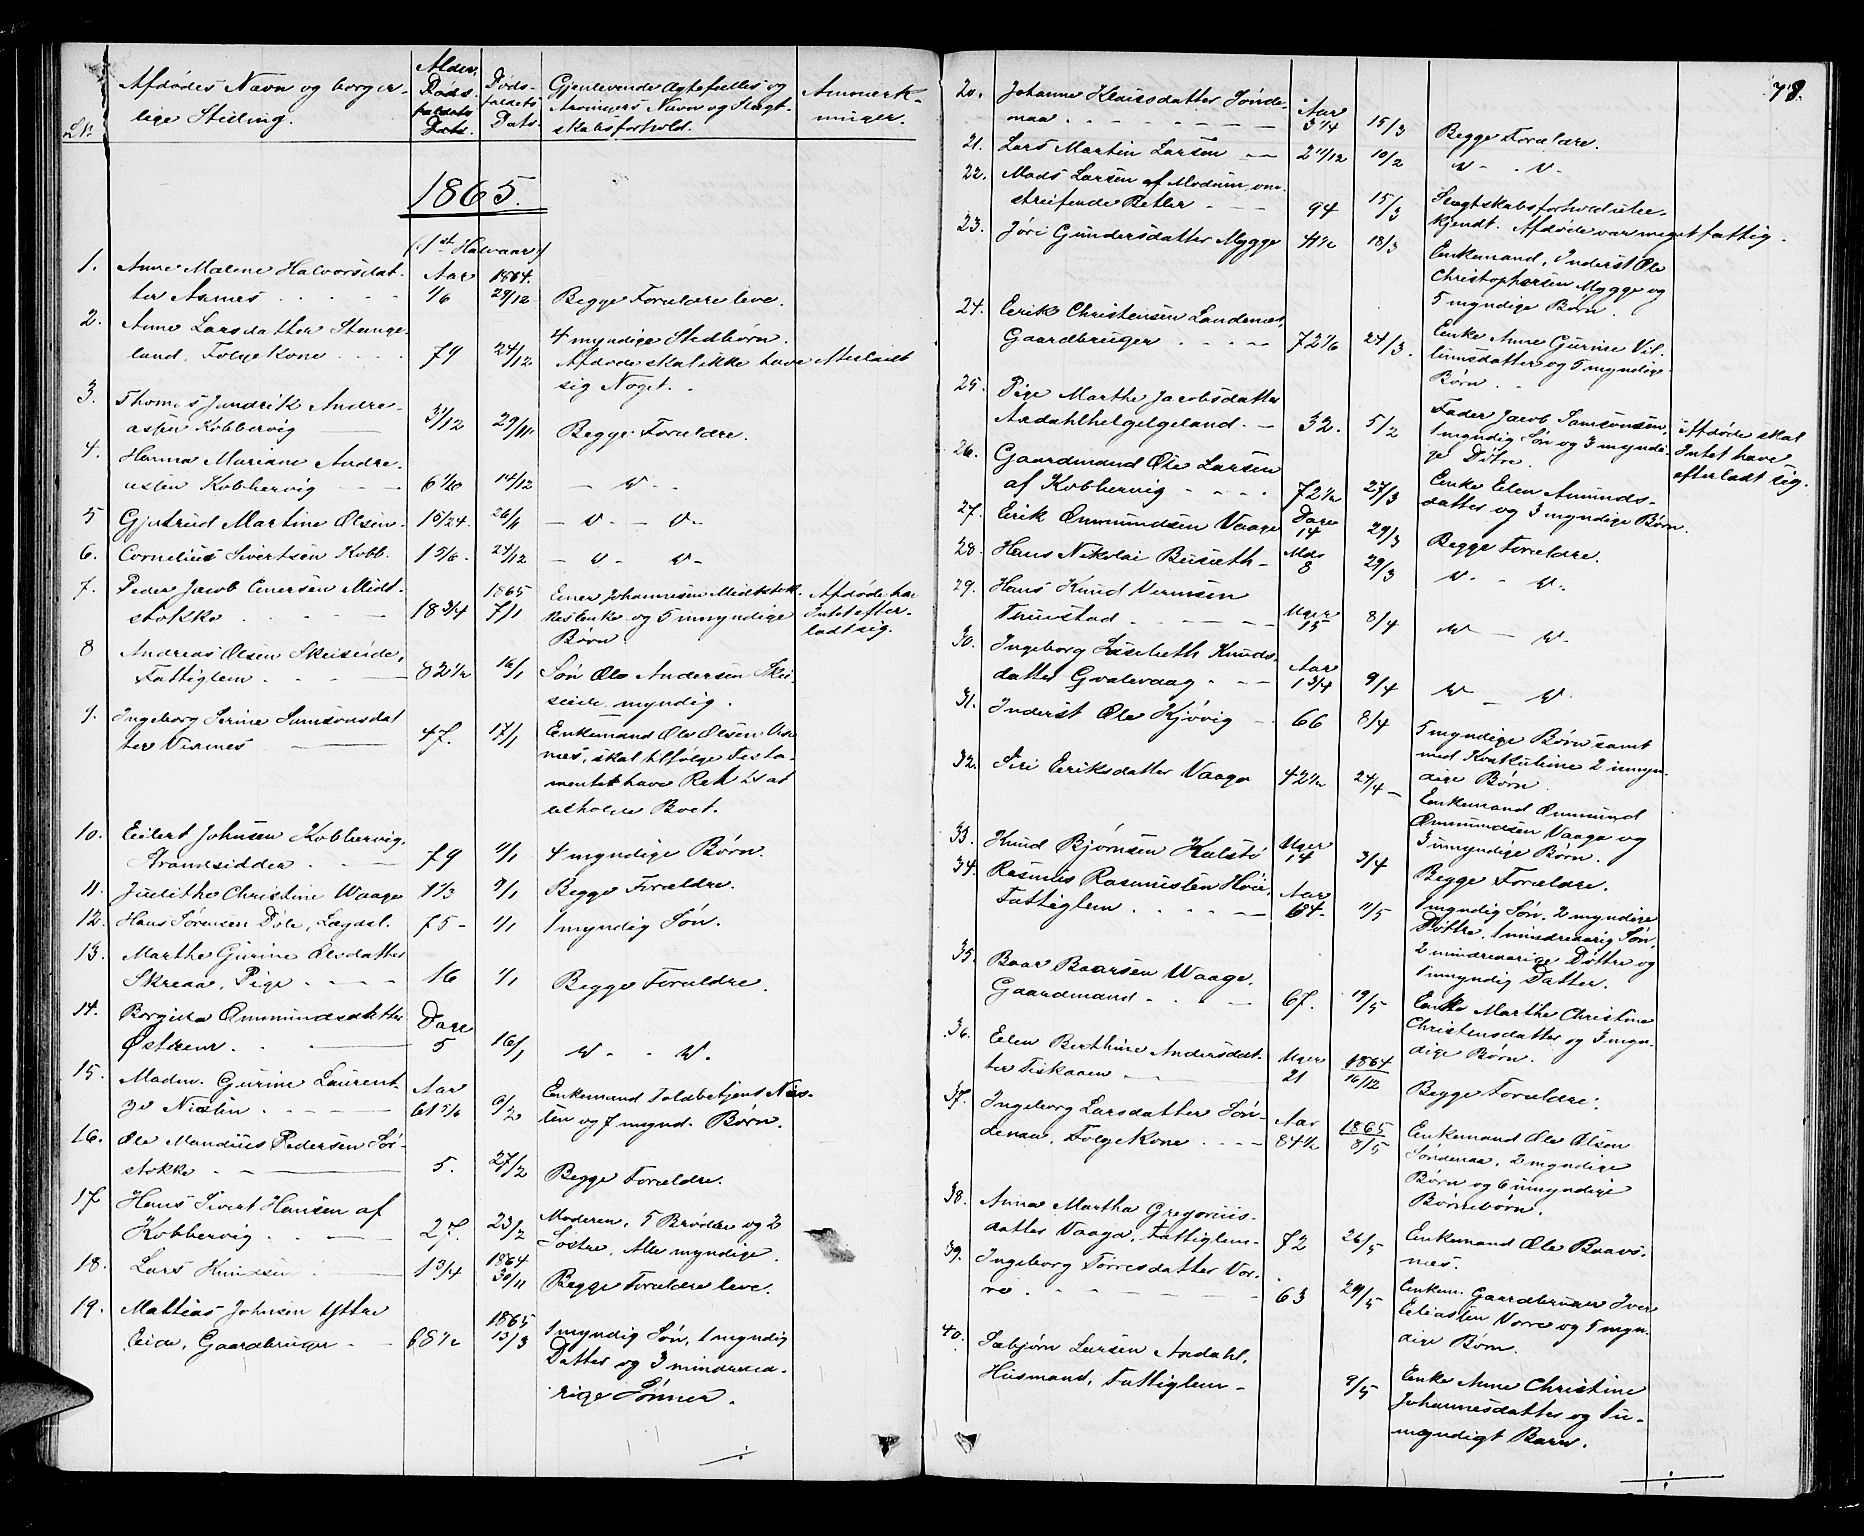 No. Afdødes Navn og borger- Alder. Døds- Gjenlevende Ægtefælles og Anmærk-
lige Stilling. Dødsfaldets Dato. faldets Dato. Arvingers Navn og Slægt- ninger.
skabsforhold.
1865.
(1ste Halvaar)
1. Anne Malene Halvorsdat- Aar 1864.
ter Aarnes 1/6 29/12 Begge Forældre leve.
2. Anne Larsdatter Stange- 4 myndige Stedbørn.
land, Følgekone 79 24/12 Afdøde skal ikke have efterladt
sig Noget.
3. Thomas Jundrik Andre-
assen Kobbervig 3 1/12 29/11 Begge Forældre.
4. Hanna Mariane Andre-
assen Kobbervig 14/12 — v. -
5 Gjertrud Martine Olsen 15/24. — v. — v.
6. Cornelius Sivertsen Kobb. 1 5/6. 24/12 — v. v.
7. Peder Jacob Einersen Midt- 1865 Einer Johannesen Midtstok- Afdøde har
stokke 18 3/4 7/1 kes Enke og 5 umyndige Intet efter-
Børn. ladt sig.
8 Andreas Olsen Skeiseide,
Fattiglem. 82 1/2 16/1 Søn Ole Andersen Skei-
seide, myndig.
9. Ingeborg Serine Samsonsdat
ter Visnes 47. 17/1 Enkemand Ole Olsen Vis-
nes, skal tilfølge Testa-
mentet have Ret til at
beholde Boet.
10. Eilert Johnsen Kobbervig,
Strandsidder 79 4 myndige Børn.
11. Judithe Christine Waage 1 1/3 Begge Forældre.
12. Hans Sørensen Døle, Lægdsl. 75 - 1 myndig Søn.
13. Marthe Gurine Olsdatter
Skreaa, Pige. 16 Begge Forældre.
14. Borgilla Ommundsdatter Dage
Østrem. 5 16/1 v. - v.
15. Madm. Gurine Laurent- Aar Enkemand Toldbetjent Niel-
ze Nielsen 6/2 sen og 7 mynd. Børn.
16. Ole Mandius Pedersen Sør-
stokke 5. 27/2 Begge Forældre.
17. Hans Sivert Hansen af
Kobbervig 27. 23/2 Moderen, 5 Brødre og 2
Søstre, Alle myndige.
18. Lars Knudsen 1 3/4 1864 30/11 Begge Forældre leve.
19. Mathias Johnsen Yttre 1865
Eide, Gaardbruger 68 1/2 13/3 1 myndig Søn, 1 myndig
Datter og 3 mindreaa-
rige Sønner.
78.
20. Johanne Klausdatter Sønde- Aar
naa 3 1/4 15/3 Begge Forældre.
21. Lars Martin Larsen — 2 11/12 10/2 v. - v.
22. Mads Larsen af Modum, om-
streifende Betler 94 15/3 Slægtskabsforhold ube-
kjendt. Afdøde var meget fattig.
23. Jøri Gundersdatter Mygge 18/3 Enkemand, Inderst Ole
Christophersen Mygge og
5 myndige Børn.
24. Eerik Christensen Landenæs,
Gaardbruger 72 1/6 24/3. Enke Anne Gurine Vil-
lumsdatter og 5 myndige
Børn.
25. Pige Marthe Jacobsdatter
Aadahlhelgelgeland. 32. 5/2 Fader Jacob Samsonsen, Afdøde skal
1 myndig Søn og 3 myndi- Intet have
ge Døtre. efterladt sig.
26. Gaardmand Ole Larsen
af Kobbervig 72 1/2 27/3 Enke Elen Amunds-
datter og 3 myndige Børn.
27. Erik Ommundsen Vaage Dage 14 29/3 Begge Forældre.
28. Hans Nikolai Buseth- Mdr 8 29/3 v. - v.
29. Hans Knud Vermsen
Tuvstad Uger 15 8/4 v. — v.
30. Ingeborg Lisebeth Knuds- Aar
datter Gvalevaag 1 3/4 9/4 v. - v.
31. Inderst Ole Kjøvig 66 8/4 5 myndige Børn samt
med Konkubine 2 umyn-
dige Børn.
32. Siri Eeriksdatter Vaage 42 1/2 24/4 — Enkemand Ommund
Ommundsen Vaage og
3 umyndige Børn.
33. Knud Bjørnsen Kalstø Uger 14 3/4 Begge Forældre.
34. Rasmus Rasmussen Høie, Aar
Fattiglem 64. 11/5 1 myndig Søn, 2 myndige
Døttre, 1 mindreaarig Søn,
2 mindreaarige Døttre og
1 myndig Datter.
35. Baar Baarsen Waage,
Gaardmand 67. 19/5 Enke Marthe Christine
Christensdatter og 3 myn-
dige Børn.
36. Elen Berthine Andersdat- Uger 1864
ter Fiskaaen 21 16/12 Begge Forældre.
37. Ingeborg Larsdatter Søn- Aar 1865
denaa, Følgekone 84 1/2 8/5 Enkemand Ole Olsen
Søndenaa, 2 myndige
Børn og 6 umyndige
Børnebørn.
38. Anna Martha Gregorius-
datter Vaaga, Fattiglem- 72 26/5 Enkemand Ole Baavs-
næs.
39. Ingeborg Torresdatter Vor-
re. 63 29/5 Enkem. Gaardbruger Iver
Eeliassen Vorre og 5 myn-
dige Børn.
40. Sæbjørn Larsen Aadahl,
Husmand, Fattiglem- 9/5 Enke Anne Christine
Johannesdatter og 1 u-
myndigt Barn.